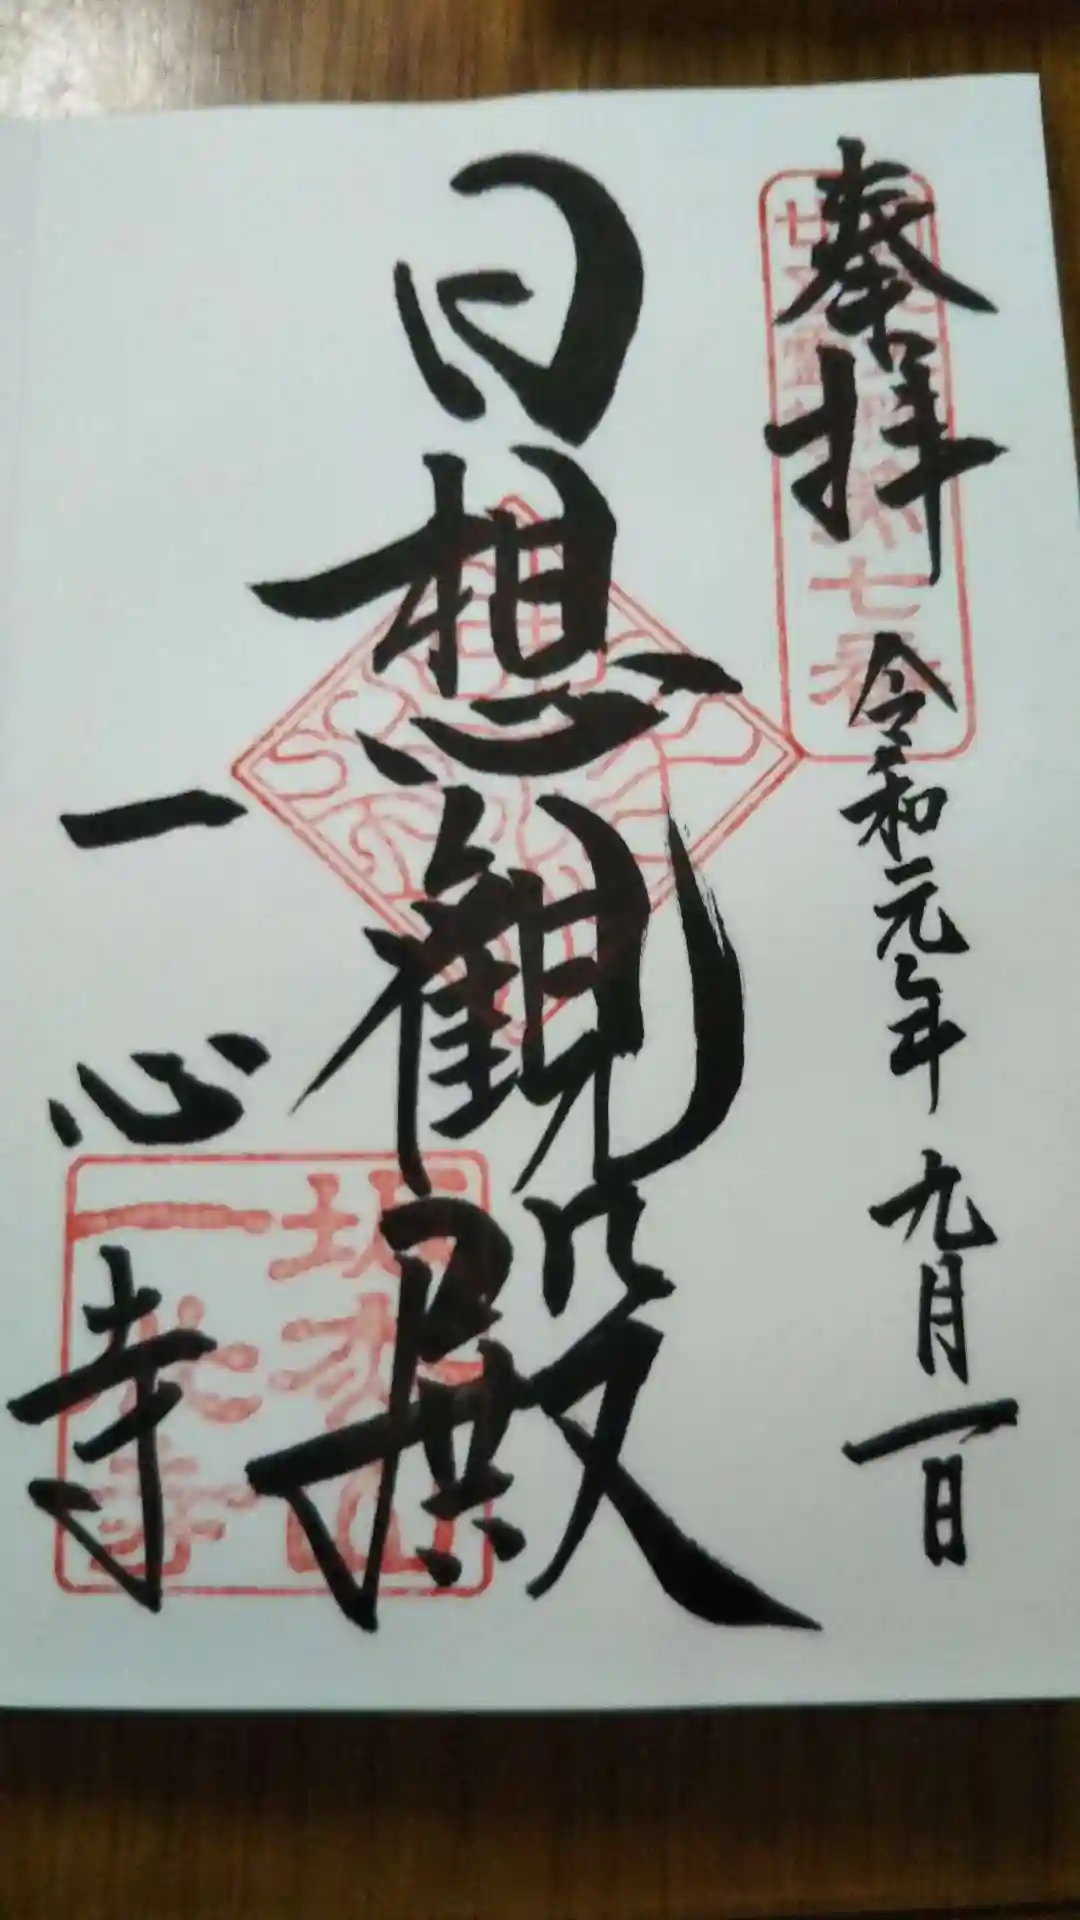 奉拝
令和元年九月一日
日想觀殿
一心寺
坂松山
一心寺